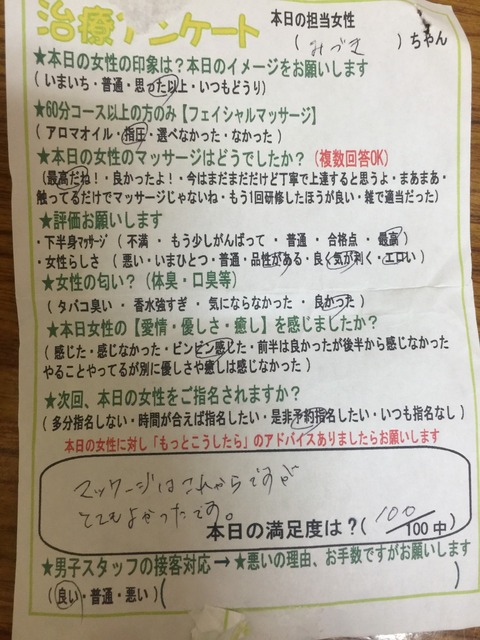 治療アンケート
本日の担当女性
( みづき )ちゃん
★本日の女性の印象は？本日のイメージをお願いします
( いまいち・普通・思った以上・いつもどうり)
★60分コース以上の方のみ【フェイシャルマッサージ】
( アロマオイル・指圧・選べなかった・なかった )
★本日の女性のマッサージはどうでしたか？(複数回答OK)
(最高だね！・良かったよ！・今はまだまだだけど丁寧で上達すると思うよ・まあまあ・
触ってるだけでマッサージじゃないね・もう1回研修したほうが良い・雑で適当だった)
★評価お願いします
・下半身マッサージ ( 不満 ・ もう少しがんばって ・ 普通 ・ 合格点 ・ 最高 )
・女性らしさ ( 悪い・いまひとつ・普通・品性がある・良く気が利く・エロい )
★女性の匂い？ (体臭・口臭等)
( タバコ臭い ・ 香水強すぎ ・ 気にならなかった ・ 良かった )
★本日女性の【愛情・優しさ・癒し】を感じましたか？
( 感じた・感じなかった・ビンビン感じた・前半は良かったが後半から感じなかった
やることやってるが別に優しさや癒しは感じなかった )
★次回、本日の女性をご指名されますか？
( 多分指名しない・時間が合えば指名したい・是非予約指名したい・いつも指名なし )
本日の女性に対し「もっとこうしたら」のアドバイスありましたらお願いします
マッサージはこれからですが
とてもよかったです。
本日の満足度は？( 100/100中)
★男子スタッフの接客対応 → ★悪いの理由、お手数ですがお願いします
(良い・普通・悪い )( )